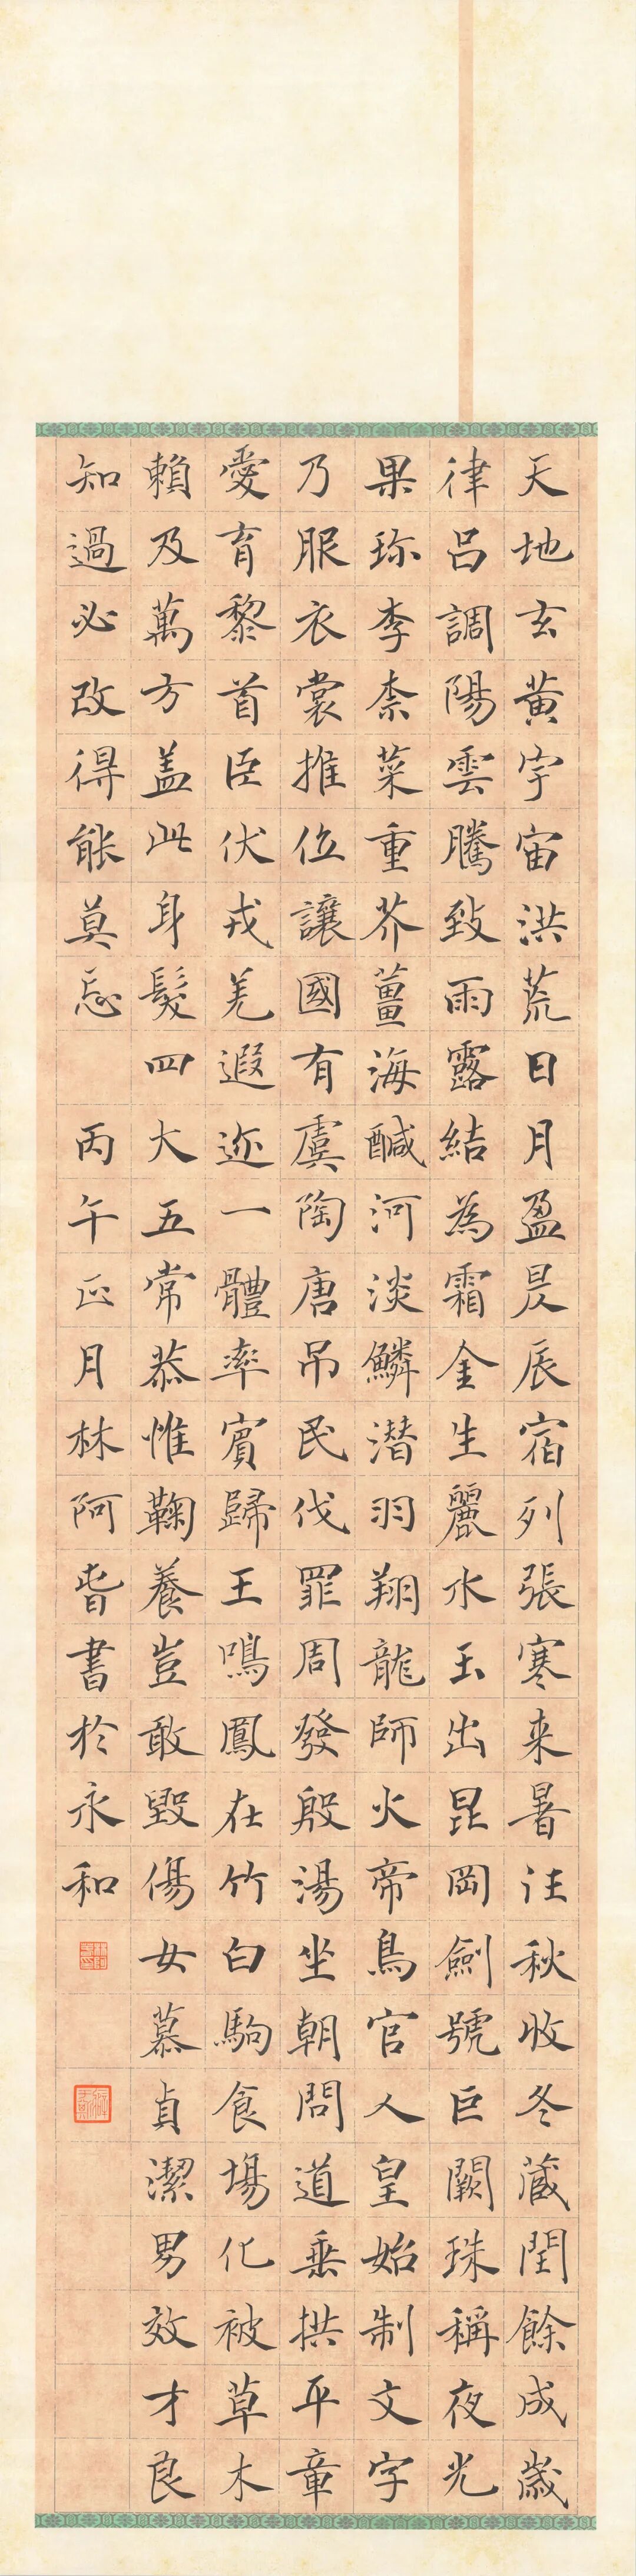 天地玄黃宇宙洪荒日月盈昃辰宿列張寒来暑往秋收冬藏閏餘成歲
律呂調陽雲騰致雨露結為霜金生麗水玉出昆岡劍號巨闕珠稱夜光
果珎李柰菜重芥薑海鹹河淡鱗潛羽翔龍師火帝鳥官人皇始制文字
乃服衣裳推位讓國有虞陶唐吊民伐罪周發殷湯坐朝問道垂拱平章
愛育黎首臣伏戎羌遐迩一體率賓歸王鳴鳳在竹白駒食場化被草木
賴及萬方盖此身髮四大五常恭惟鞠養豈敢毀傷女慕貞潔男效才良
知過必改得能莫忘 丙午正月林阿書於永和